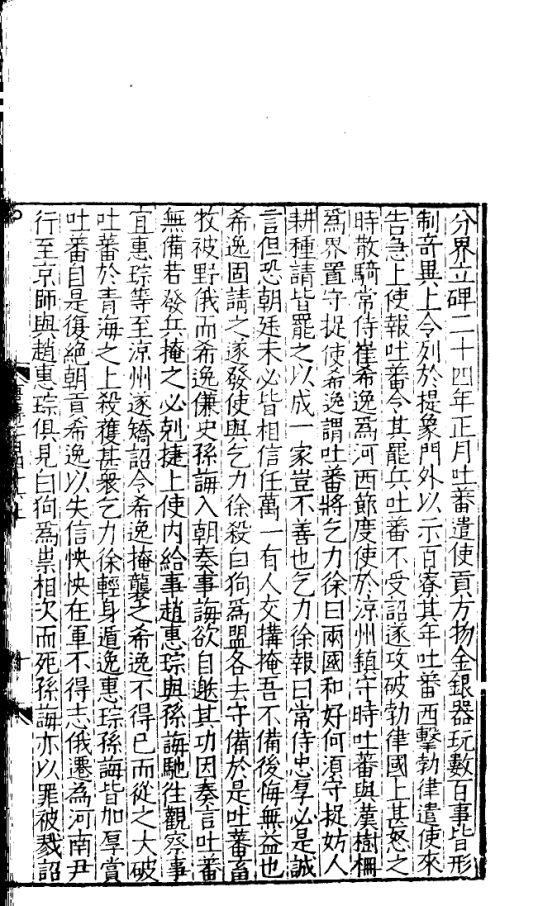 分界立碑二十四年正月吐蕃遣使貢方物金銀器玩數百事皆形
制奇異上令列於提象門外以示百寮其年吐蕃西擊勃律遣使來
告急上使報吐蕃令其罷兵吐蕃不受詔遂攻破勃律國上甚怒之
時散騎常侍崔希逸爲河西節度使於涼州鎮守時吐蕃與漢樹柵
爲界置守捉使希逸謂吐蕃將乞力徐曰兩國和好何須守捉妨人
耕種請皆罷之以成一家豈不善也乞力徐報曰常侍忠厚必是誠
言但恐朝廷未必皆相信任萬一有人交搆掩吾不備後悔無益也
希逸固請之遂發使與乞力徐殺白狗爲盟各去守備於是吐蕃畜
牧被野俄而希逸傔史孫誨入朝奏事誨欲自邀其功因奏言吐蕃
無備若發兵掩之必剋捷上使內給事趙惠琮與孫誨馳往觀察事
宜惠琮等至涼州遂矯詔令希逸掩襲之希逸不得已而從之大破
吐蕃於青海之上殺獲甚衆乞力徐輕身遁逸惠琮孫誨皆加厚賞
吐蕃自是復絕朝貢希逸以失信怏怏在軍不得志俄遷爲河南尹
行至京師與趙惠琮俱見白狗爲祟相次而死孫誨亦以罪被戮詔